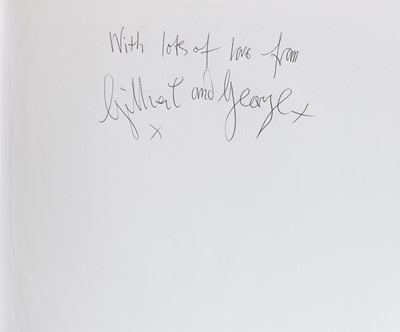 With lots of love from
Gilbert and George x
x